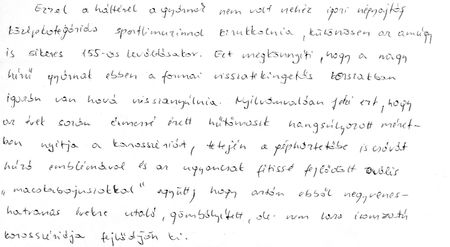 Ezzel a háttérrel a gyárnak nem volt nehéz igazi népnyúzó
középkategóriás sportlimuzinnal kirukkolnia, különösen az amúgy
is sikeres 155-ös leváltásakor. Ezt megkönnyíti, hogy a nagy
hírű gyárnak ebben a formai visszatekingetés korszakban
igazán van hová visszanyúlnia. Nyilvánvalóan jelzi ezt, hogy
az évek során érmessé érett hűtőmaszk hangsúlyozott méret-
ben nyitja a karosszériát, tetején a gépháztetőbe is csúcsát
húzó emblémával és az ugyancsak fétissé fejlődött ovális
"macskabajuszokkal" együtt, hogy aztán ebből negyvenes-
hatvanas évekre utaló, gömbölyített, de nem laza izomzatú
karosszériája fejlődjön ki.